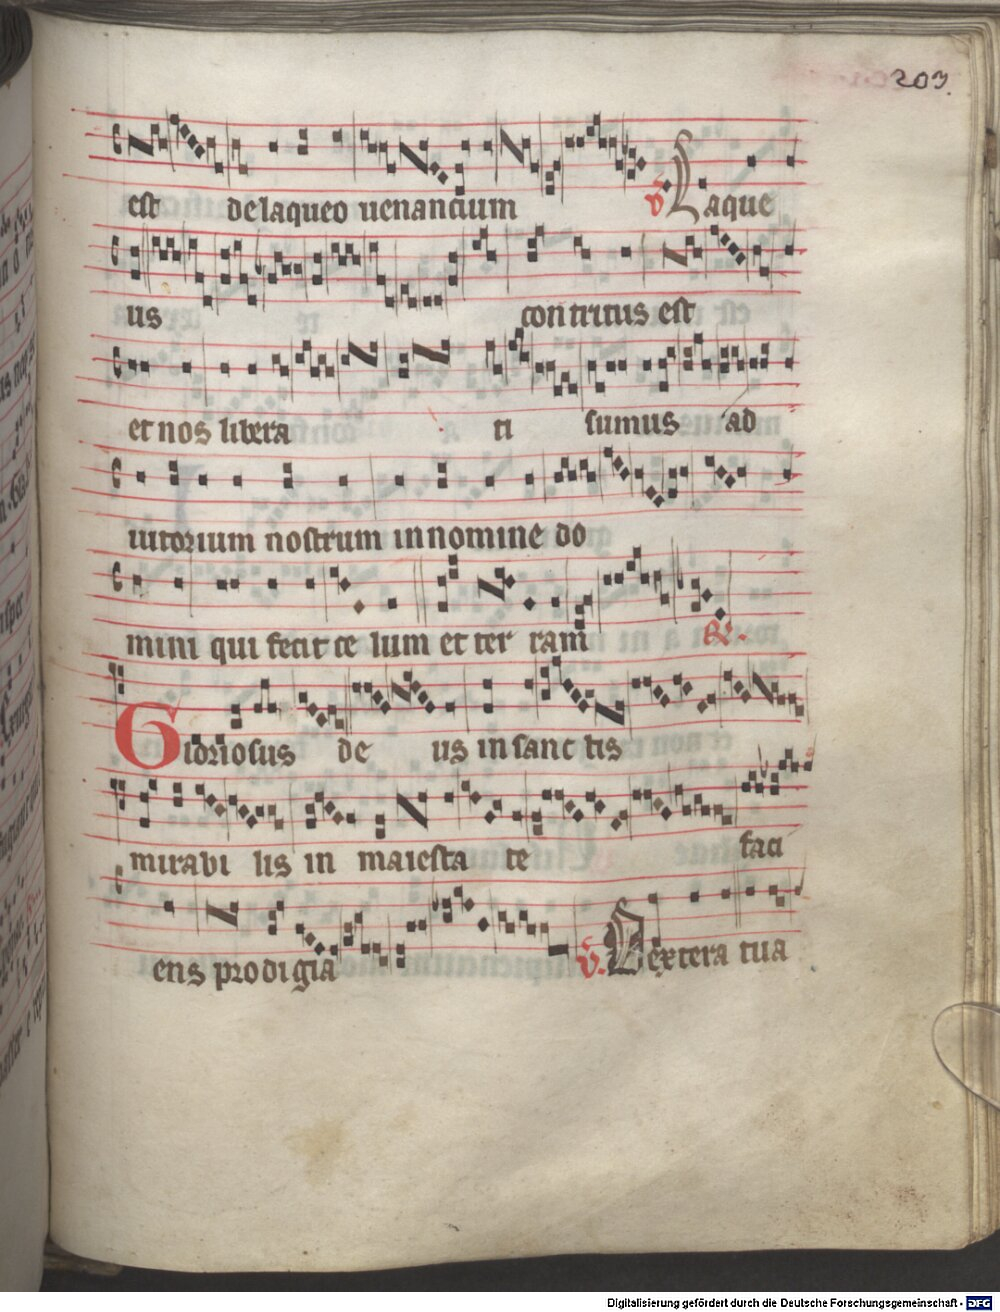 203.
est de laqueo uenancium v Laque
us contritus est
et nos libera ti sumus ad
iutorium nostrum in nomine do
mini qui fecit ce lum et ter ram
Gloriosus de us in sanc tis
mirabi lis in maiesta te faci
ens prodigia v. Dextera tua
Digitalisierung gefördert durch die Deutsche Forschungsgemeinschaft - DFG